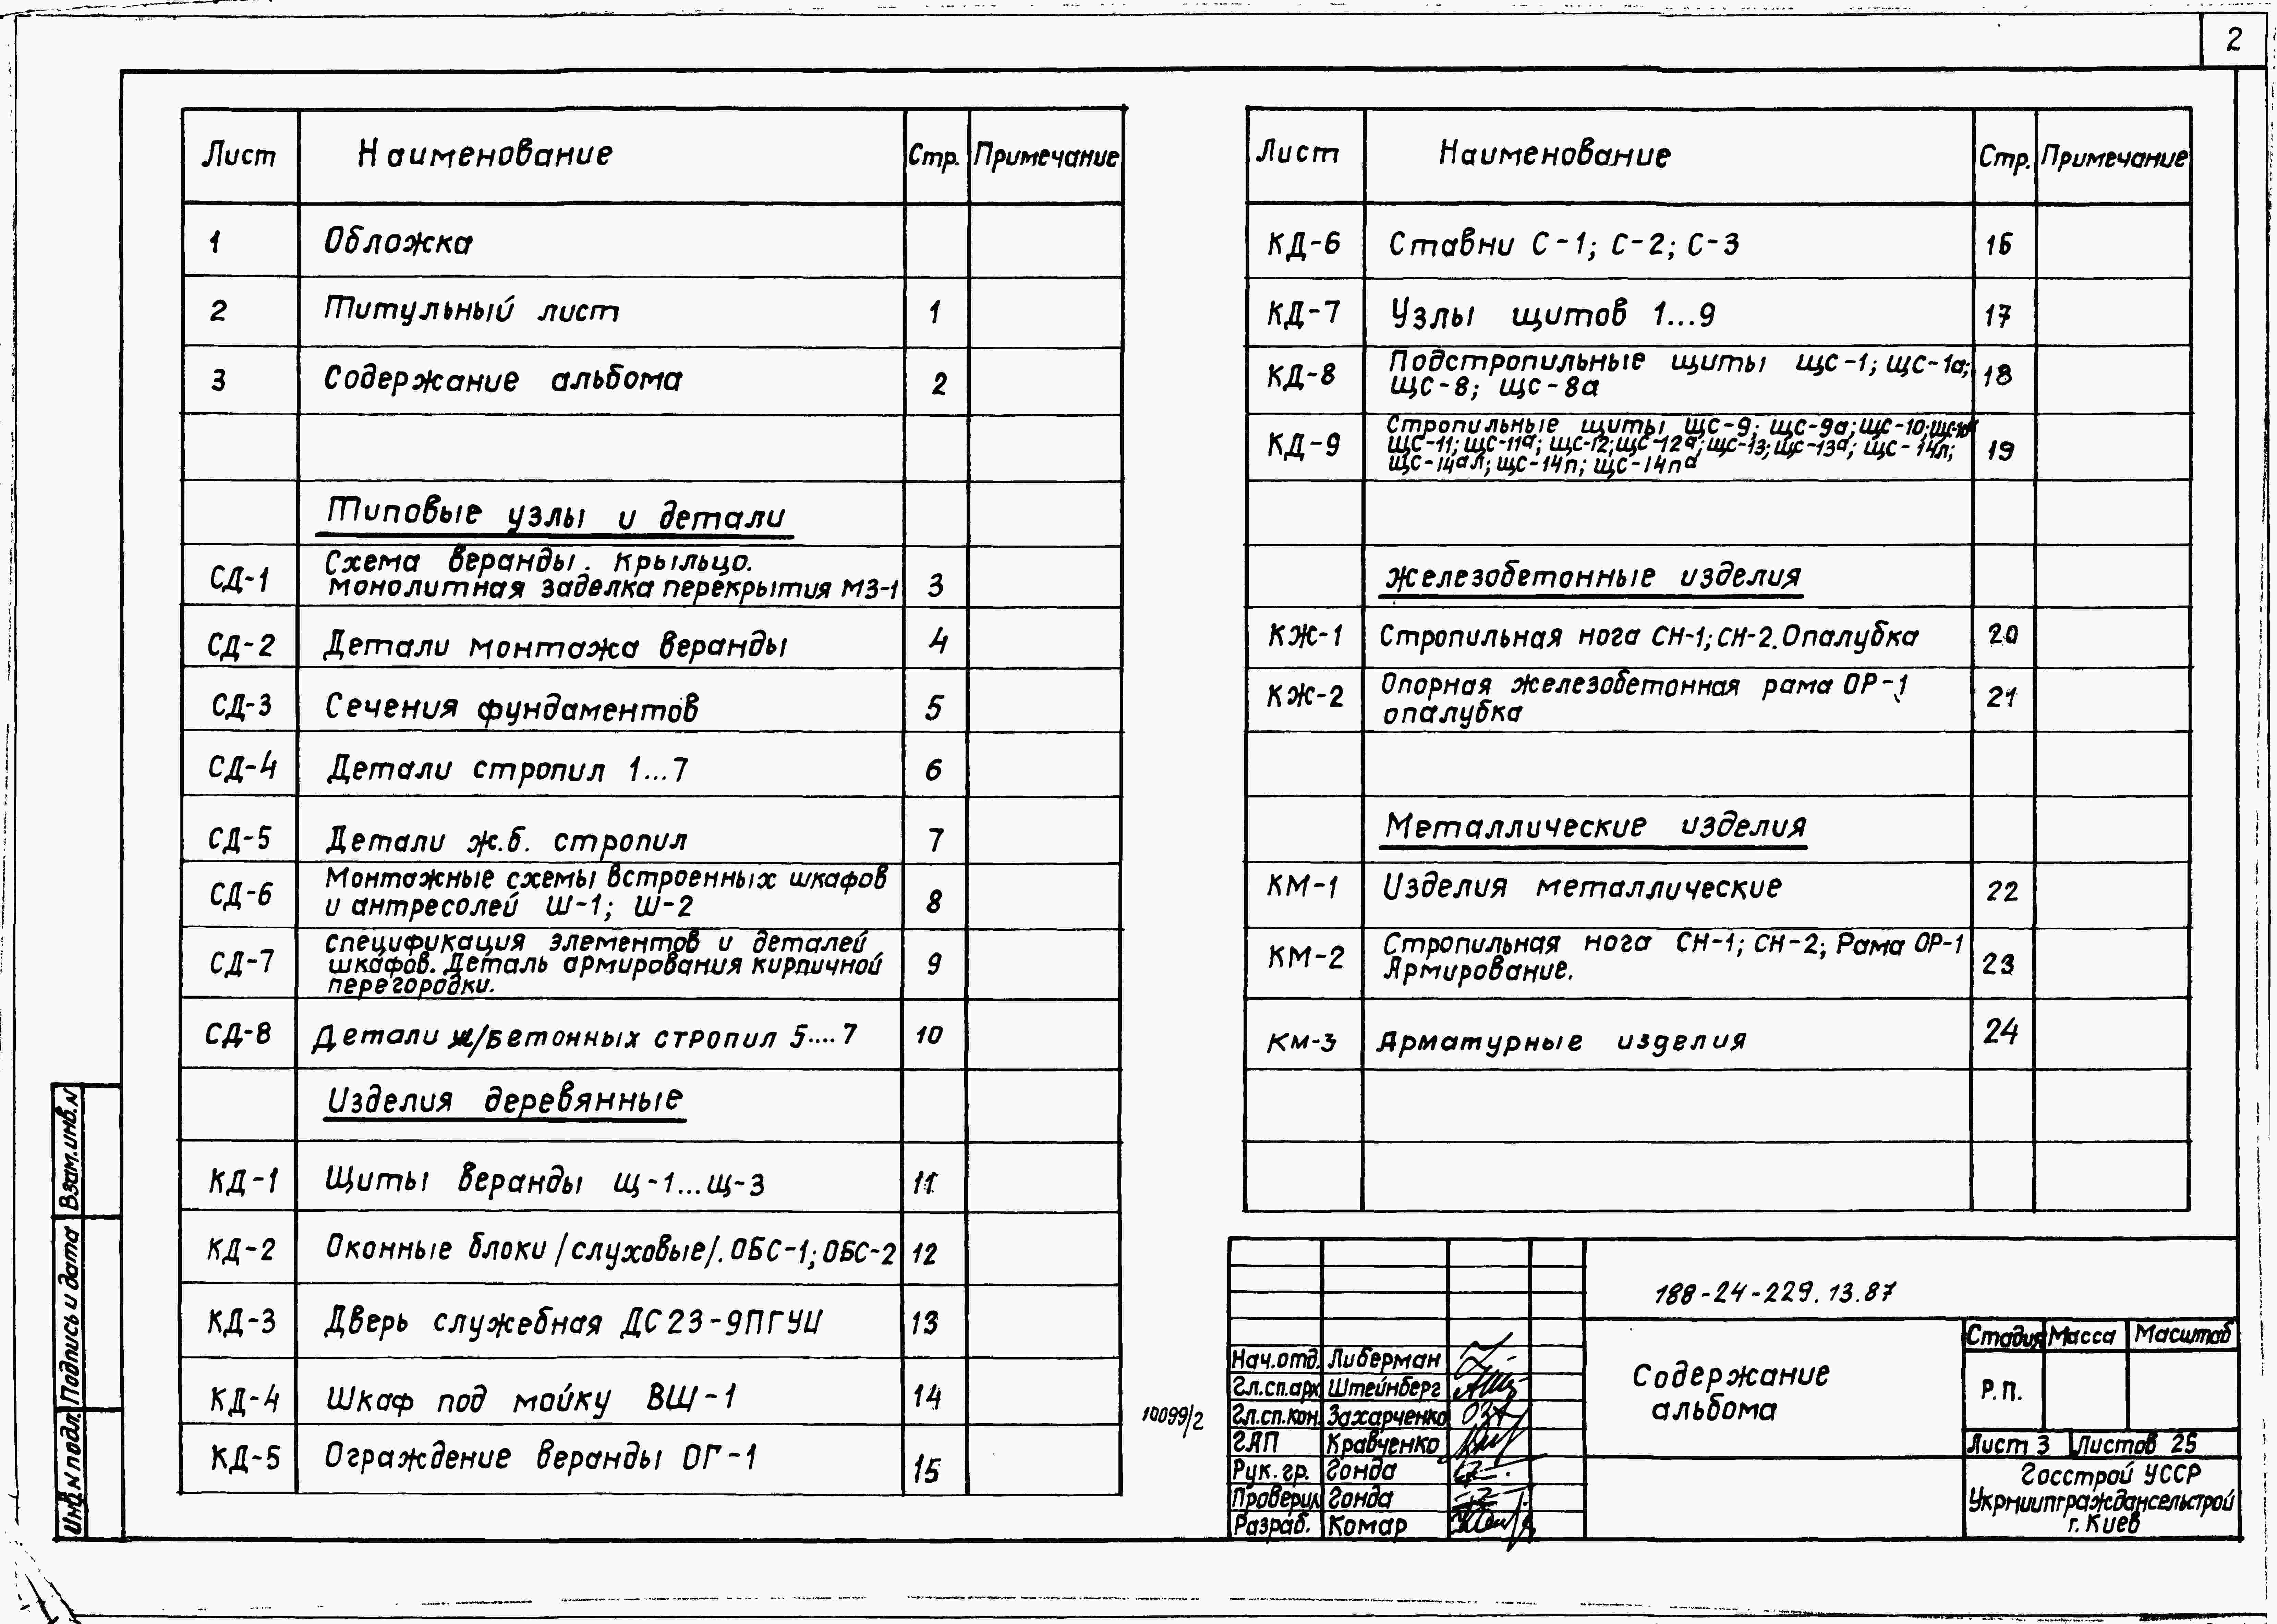 2
Лист Наименование Стр. Примечание
1 Обложка
2 Титульный лист 1
3 Содержание альбома 2
Типовые узлы и детали
СД-1 Схема веранды. крыльцо.
монолитная заделка перекрытия МЗ-1 3
СД-2 Детали монтажа веранды 4
СД-3 Сечения фундаментов 5
СД-4 Детали стропил 1...7 6
СД-5 Детали ж.б. стропил 7
СД-6 Монтажные схемы встроенных шкафов
и антресолей Ш-1; Ш-2 8
СД-7 спецификация элементов и деталей
шкафов. Деталь армирования кирпичной 9
перегородки.
СД-8 Детали ж/бетонных стропил 5....7 10
Изделия деревянные
КД-1 Щиты веранды щ-1...щ-3 11
КД-2 Оконные блоки /слуховые/. ОБС-1; ОБС-2 12
КД-3 Дверь служебная ДС23-9ПГУЦ 13
КД-4 Шкаф под мойку ВШ-1 14
КД-5 Ограждение веранды ОГ-1 15
Лист Наименование Стр. Примечание
КД-6 Ставни С-1; С-2; С-3 16
КД-7 Узлы щитов 1...9 17
КД-8 Подстропильные щиты ЩС-1; ЩС-1а;
ЩС-8; ЩС-8а 18
КД-9 Стропильные щиты ЩС-9; ЩС-9а; ЩС-10; ЩС-10а
ЩС-11; ЩС-11а; ЩС-12; ЩС-12а; ЩС-13; ЩС-13а; ЩС-14л; 19
ЩС-14ал; ЩС-14п; ЩС-14па
железобетонные изделия
КЖ-1 Стропильная нога СН-1; СН-2. Опалубка 20
КЖ-2 Опорная железобетонная рама ОР-1,
опалубка 21
Металлические изделия
КМ-1 Изделия металлические 22
КМ-2 Стропильная нога СН-1; СН-2; Рама ОР-1
Армирование. 23
Км-3 Арматурные изделия 24
Взам.инв.N
Подпись и дата
Инв.N подл.
10099/2
188-24-229.13.87
Содержание
альбома
Стадия Масса Масштаб
Р.П.
Лист 3 Листов 25
Госстрой УССР
Укрниипграждансельстрой
г. Киев
Нач.отд. Либерман
Гл.сп.арх. Штейнберг
Гл.сп.кон. Захарченко
ГАП Кравченко
Рук.гр. Гонда
Проверил Гонда
Разраб. Комар